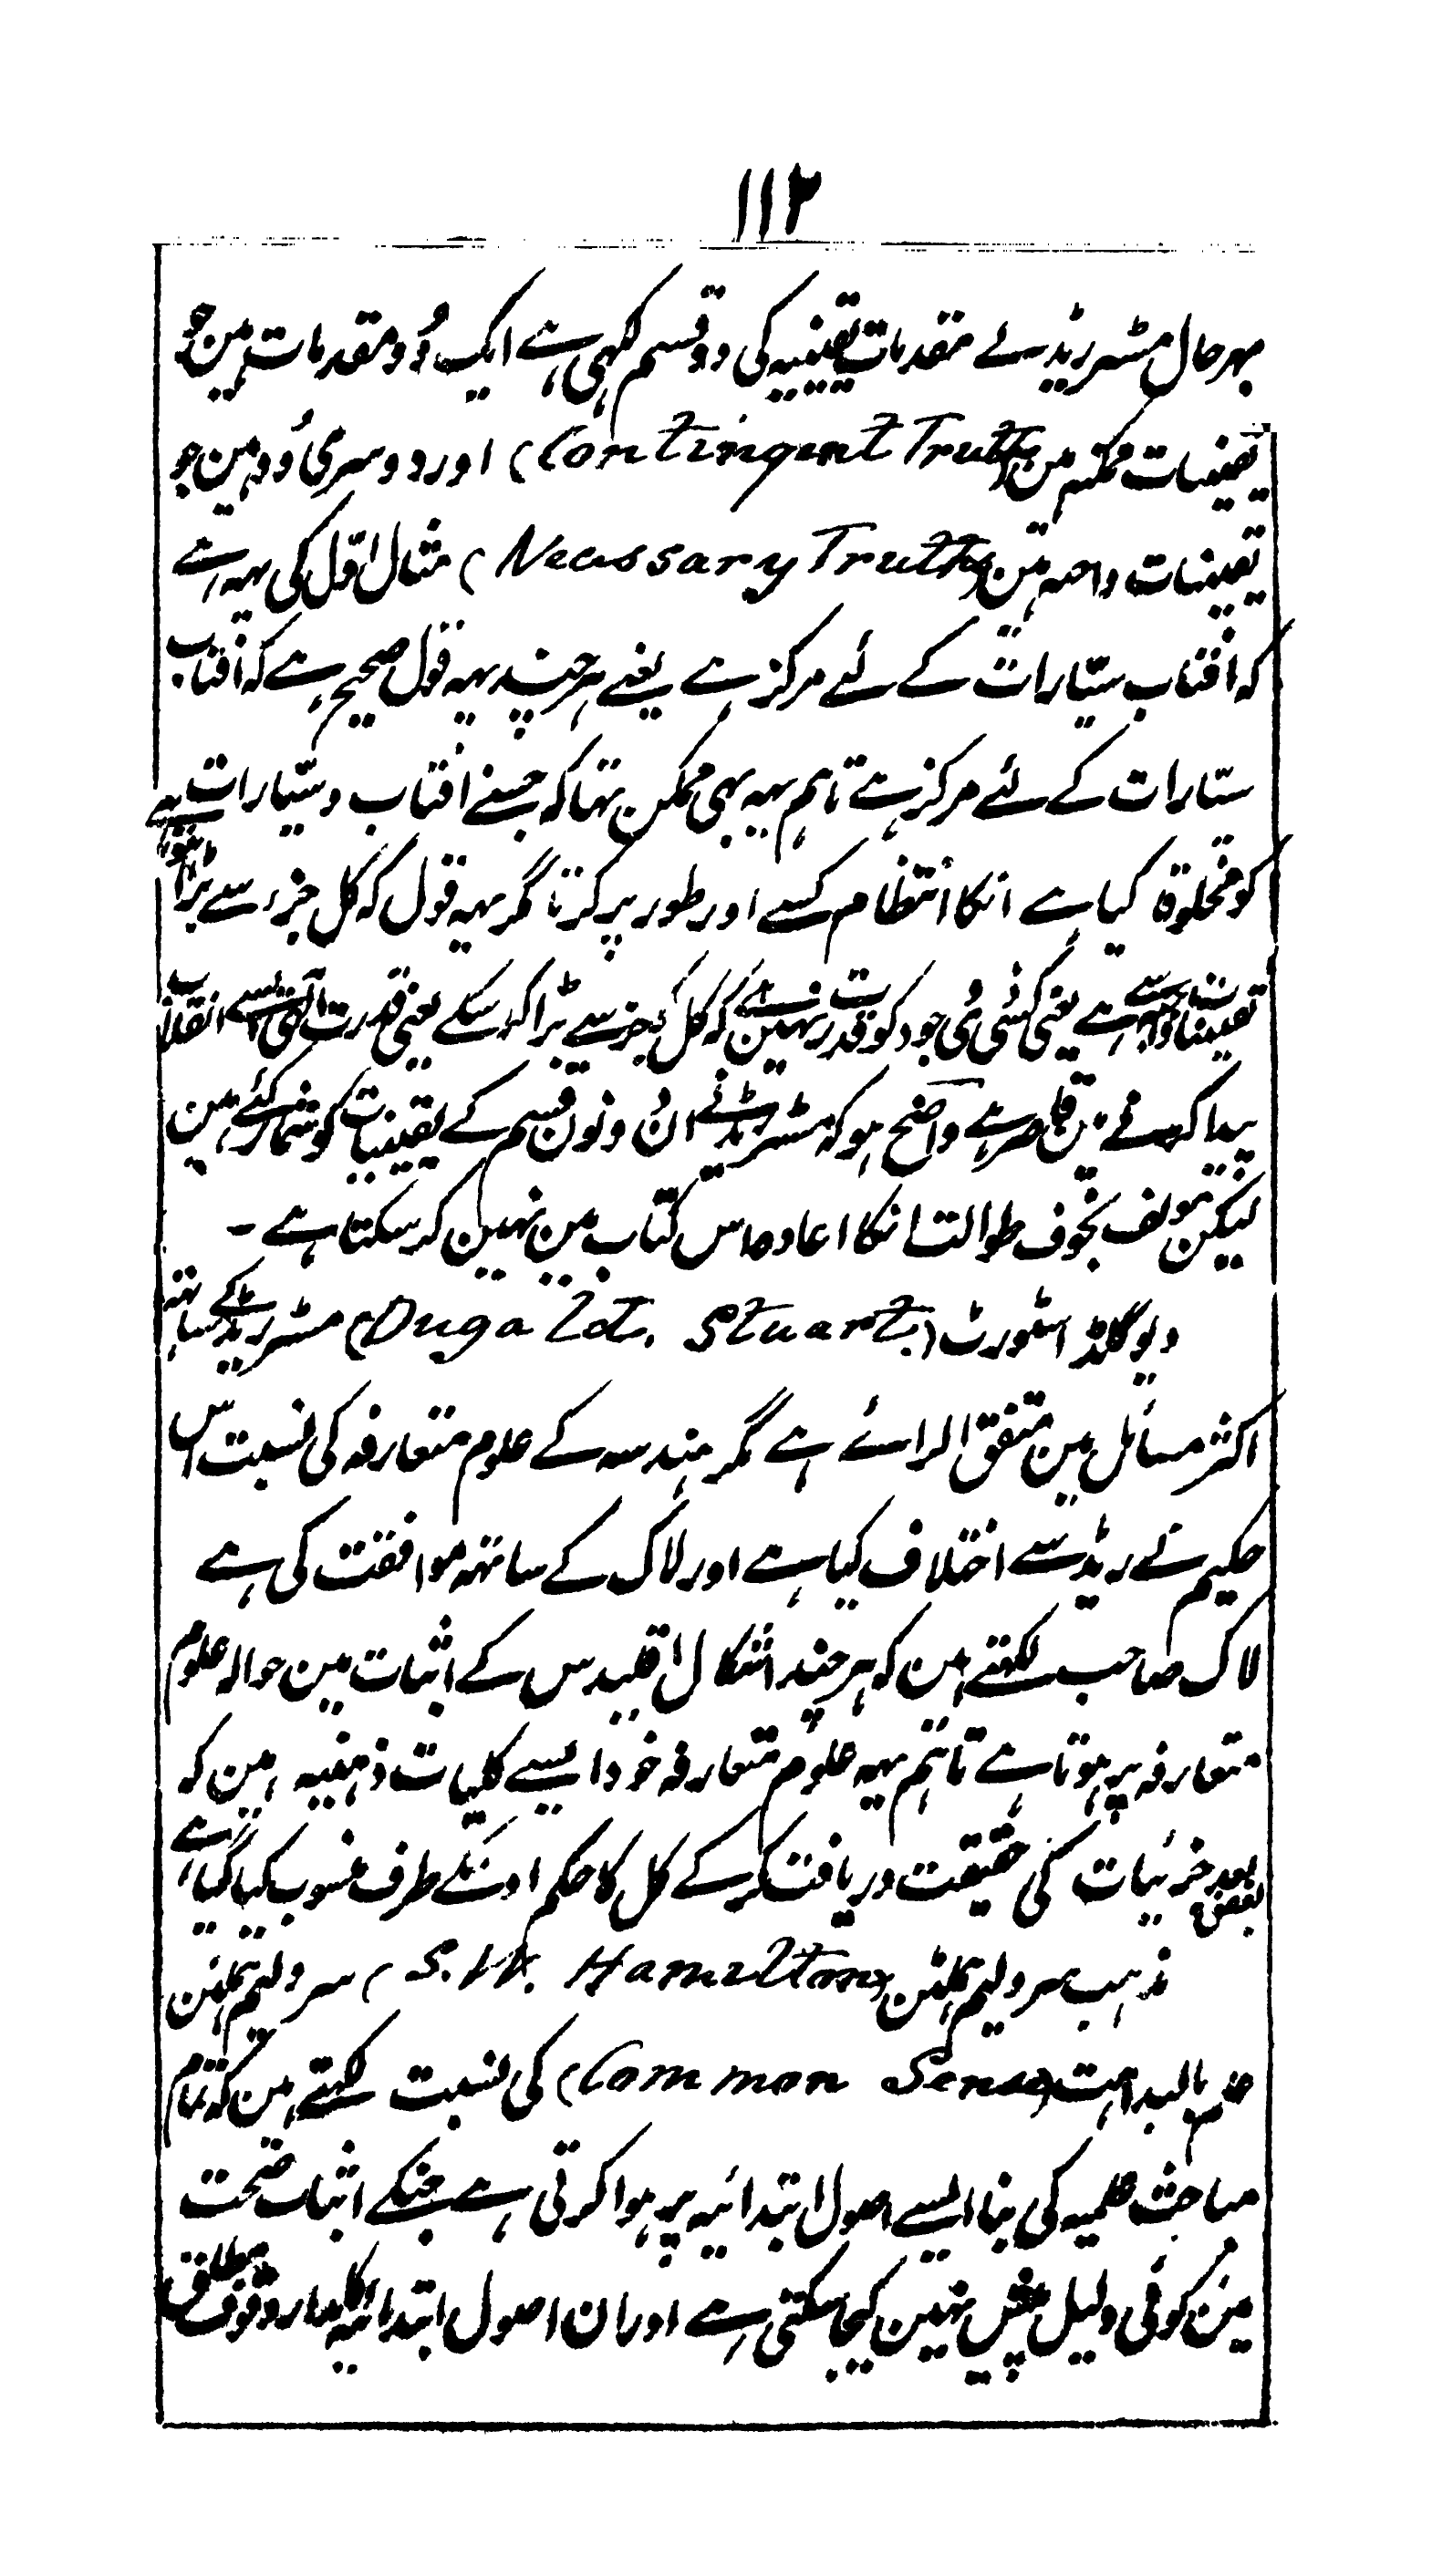 ۱۱۲
بہرحال مسٹر ریڈ نے مقدمات یقینیہ کی دو قسم لکھی ہے ایک وُہ مقدمات ہین جو
یقینیات ممکنہ ہین (Contingent Truth) اور دوسری وُہ ہین جو
یقینیات واجبہ ہین (Necessary Truth) مثال اوّل کی یہہ ہے
کہ افتاب سیّارات کے لئے مرکز ہے یعنے ہرچند یہہ قول صحیح ہے کہ افتاب
ستارات کے لئے مرکز ہے تاہم یہہ بہی ممکن تہا کہ جسنے افتاب و سیّارات
کو مخلوق کیا ہے انکا انتظام کسے اور طور پر کرتا مگر یہہ قول کہ کل جزء سے بڑا
یقینیات واجبہ سے ہے یعنی کسُی ذُی وجود کو قدرت نہین ہے کہ کل کو جز سے بڑا کر سکے یعنی قدرت الٰہی ایسے انقلاب
پیدا کرنے مین قاصر ہے واضح ہو کہ مسٹر ریڈ نے انُ دونون قسم کے یقینیات کو شمار کئے ہین
لیکن مولف بخوف طوالت انکا اعادہ اس کتاب مین نہین کر سکتا ہے -
دیوگلڈ اسٹورٹ (Dugalet. Stuart) مسٹر ریڈ کے ساتہہ
اکثر مسائل مین متفق الرائے ہے مگر ہندسہ کے علوم متعارفہ کی نسبت اس
حکیم نے ریڈ سے اختلاف کیا ہے اور لاک کے ساتہہ موافقت کی ہے
لاک صاحب لکھتے ہین کہ ہرچند اشکال اقلیدس کے اثبات مین حوالہ علوم
متعارفہ پر ہوتا ہے تاہم یہہ علوم متعارفہ خود ایسے کلیات ذہنیہ ہین کہ
بعد جزئیات کی حقیقت دریافت کرکے کل کا حکم اونکے طرف منسوب کیا گیا ہے
مذہب سر ولیم ہملٹن (S. W. Hamilton) سر ولیم ہملٹن
علم بالبداہت (Common Sense) کی نسبت لکہتے ہین کہ تمام
مباحث علمیہ کی بنا ایسے اصول ابتدائیہ پر ہوا کرتی ہے جنکے اثبات صحت
مین کوئی دلیل پیش نہین کیجا سکتی ہے اور ان اصول ابتدائیہ کا مدار وقوف مطلق